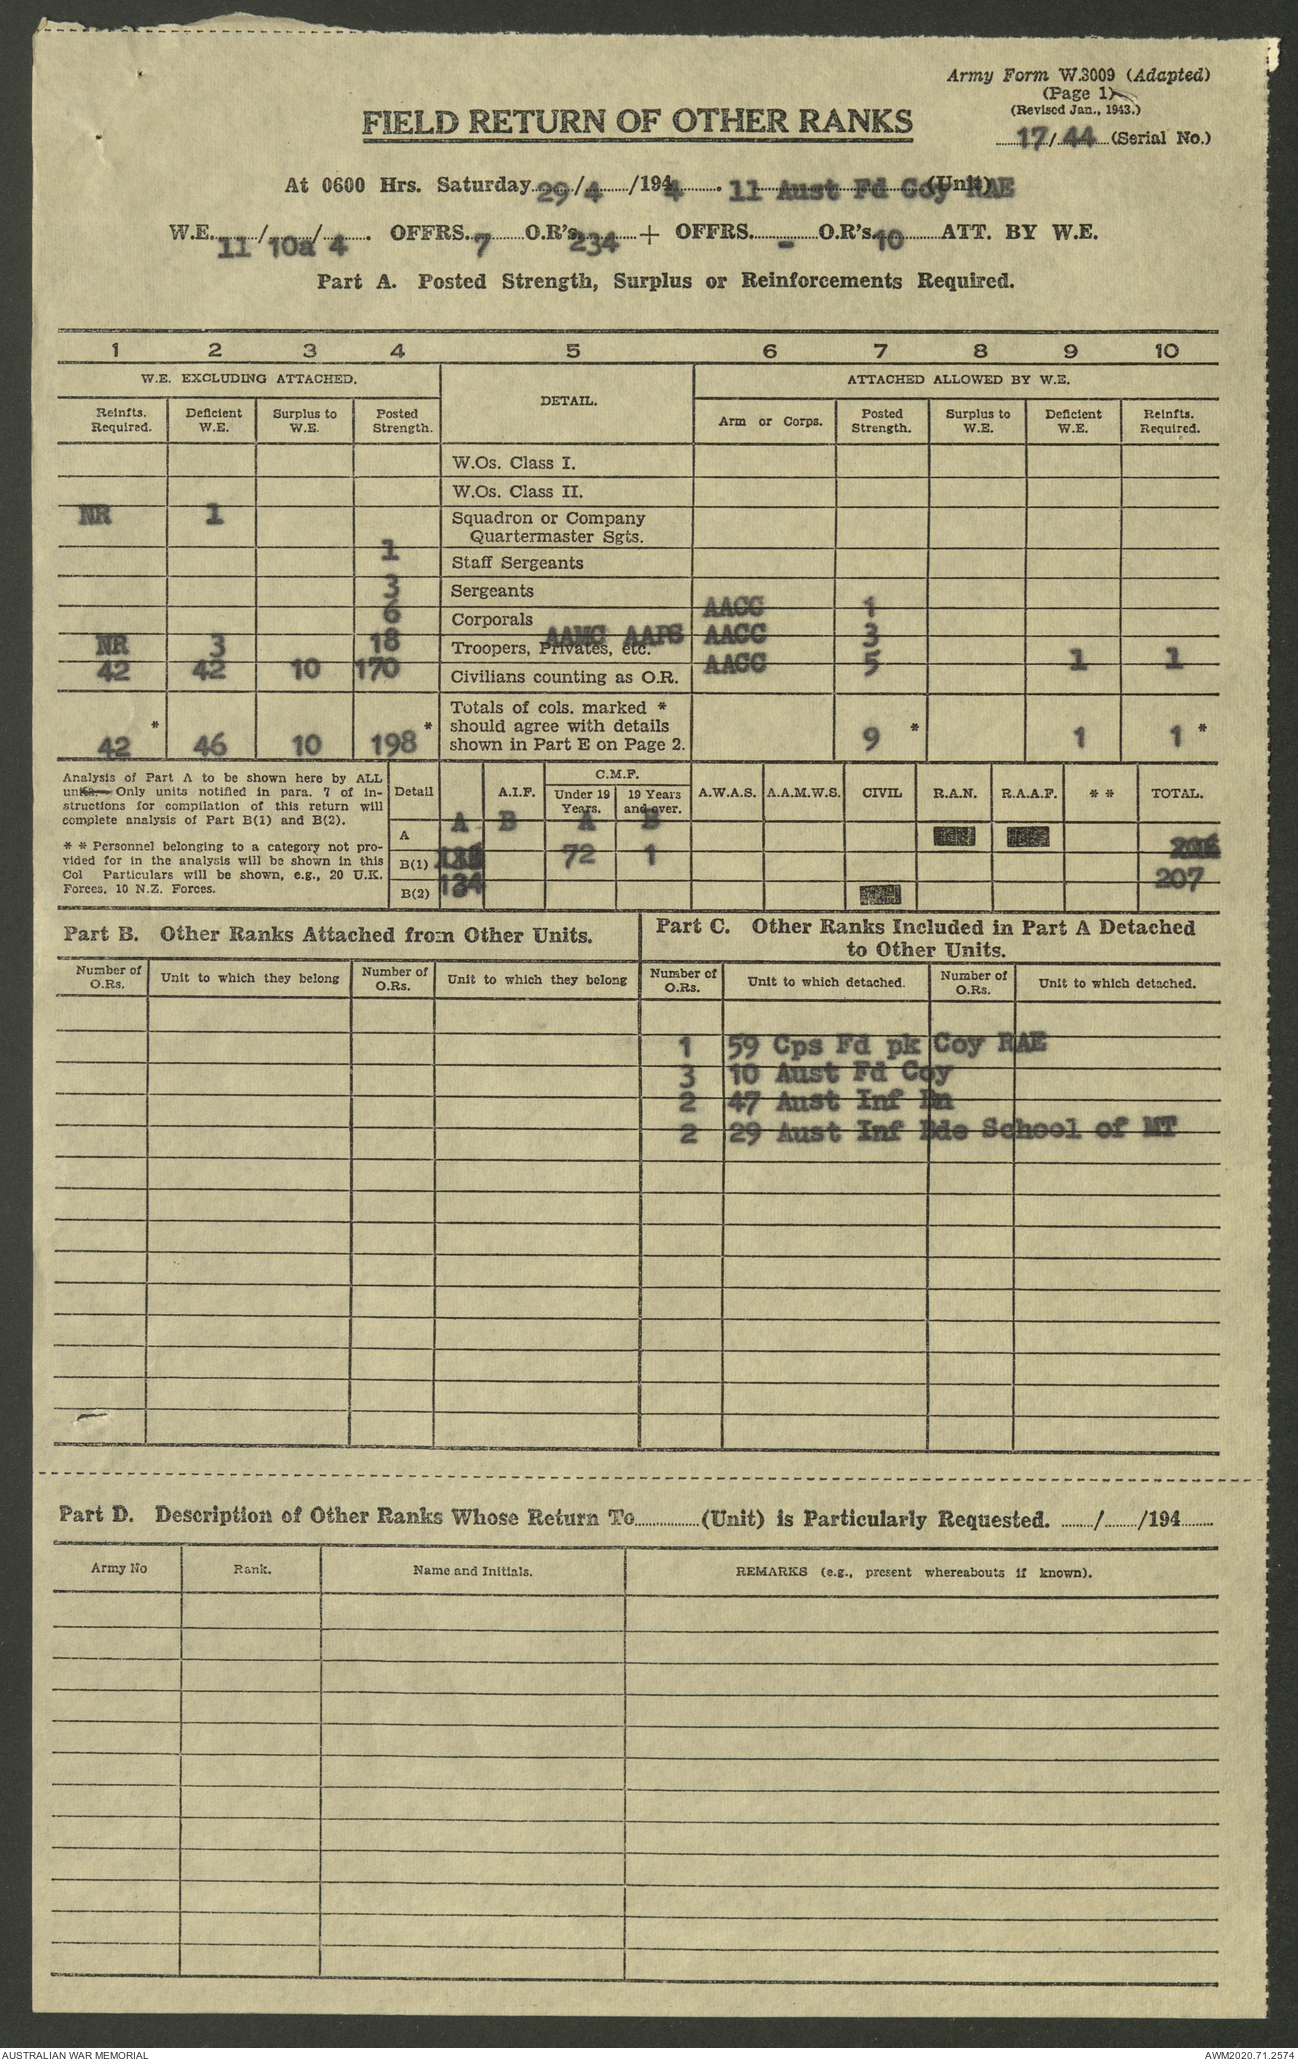 Army Form W.3009 (Adapted)
(Page 1)
(Revised Jan., 1943.)
17/44 (Serial No.)
FIELD RETURN OF OTHER RANKS
At 0600 Hrs. Saturday 29/4/1944. 11 Aust Fd Coy RAE (Unit)
W.E. 11/10a/4. OFFRS. 7 O.R's 234 + OFFRS. - O.R's 10 ATT. BY W.E.
Part A. Posted Strength, Surplus or Reinforcements Required.
1 2 3 4 5 6 7 8 9 10
W.E. EXCLUDING ATTACHED. DETAIL. ATTACHED ALLOWED BY W.E.
Reinfts. Required. Deficient W.E. Surplus to W.E. Posted Strength. Arm or Corps. Posted Strength. Surplus to W.E. Deficient W.E. Reinfts. Required.
W.Os. Class I.
W.Os. Class II.
NR 1 Squadron or Company
Quartermaster Sgts.
1 Staff Sergeants
3 Sergeants
6 Corporals AACC 1
NR 3 18 Troopers, Privates, etc. AAMC AAPS AACC 3
42 42 10 170 Civilians counting as O.R. AACC 5 1 1
Totals of cols. marked *
should agree with details
shown in Part E on Page 2.
42 * 46 10 198 * 9 * 1 1 *
Analysis of Part A to be shown here by ALL
units. Only units notified in para. 7 of in-
structions for compilation of this return will
complete analysis of Part B(1) and B(2).
* * Personnel belonging to a category not pro-
vided for in the analysis will be shown in this
Col Particulars will be shown, e.g., 20 U.K.
Forces, 10 N.Z. Forces.
Detail A.I.F. C.M.F. A.W.A.S. A.A.M.W.S. CIVIL R.A.N. R.A.A.F. * * TOTAL.
Under 19 Years. 19 Years and over.
A B A B
A
B(1) 72 1
134 207
B(2)
Part B. Other Ranks Attached from Other Units.
Number of O.Rs. Unit to which they belong Number of O.Rs. Unit to which they belong
Part C. Other Ranks Included in Part A Detached
to Other Units.
Number of O.Rs. Unit to which detached. Number of O.Rs. Unit to which detached.
1 59 Cps Fd pk Coy RAE
3 10 Aust Fd Coy
2 47 Aust Inf Bn
2 29 Aust Inf Bde School of MT
Part D. Description of Other Ranks Whose Return To............(Unit) is Particularly Requested. ....../....../194......
Army No Rank. Name and Initials. REMARKS (e.g., present whereabouts if known).
AUSTRALIAN WAR MEMORIAL AWM2020.71.2574